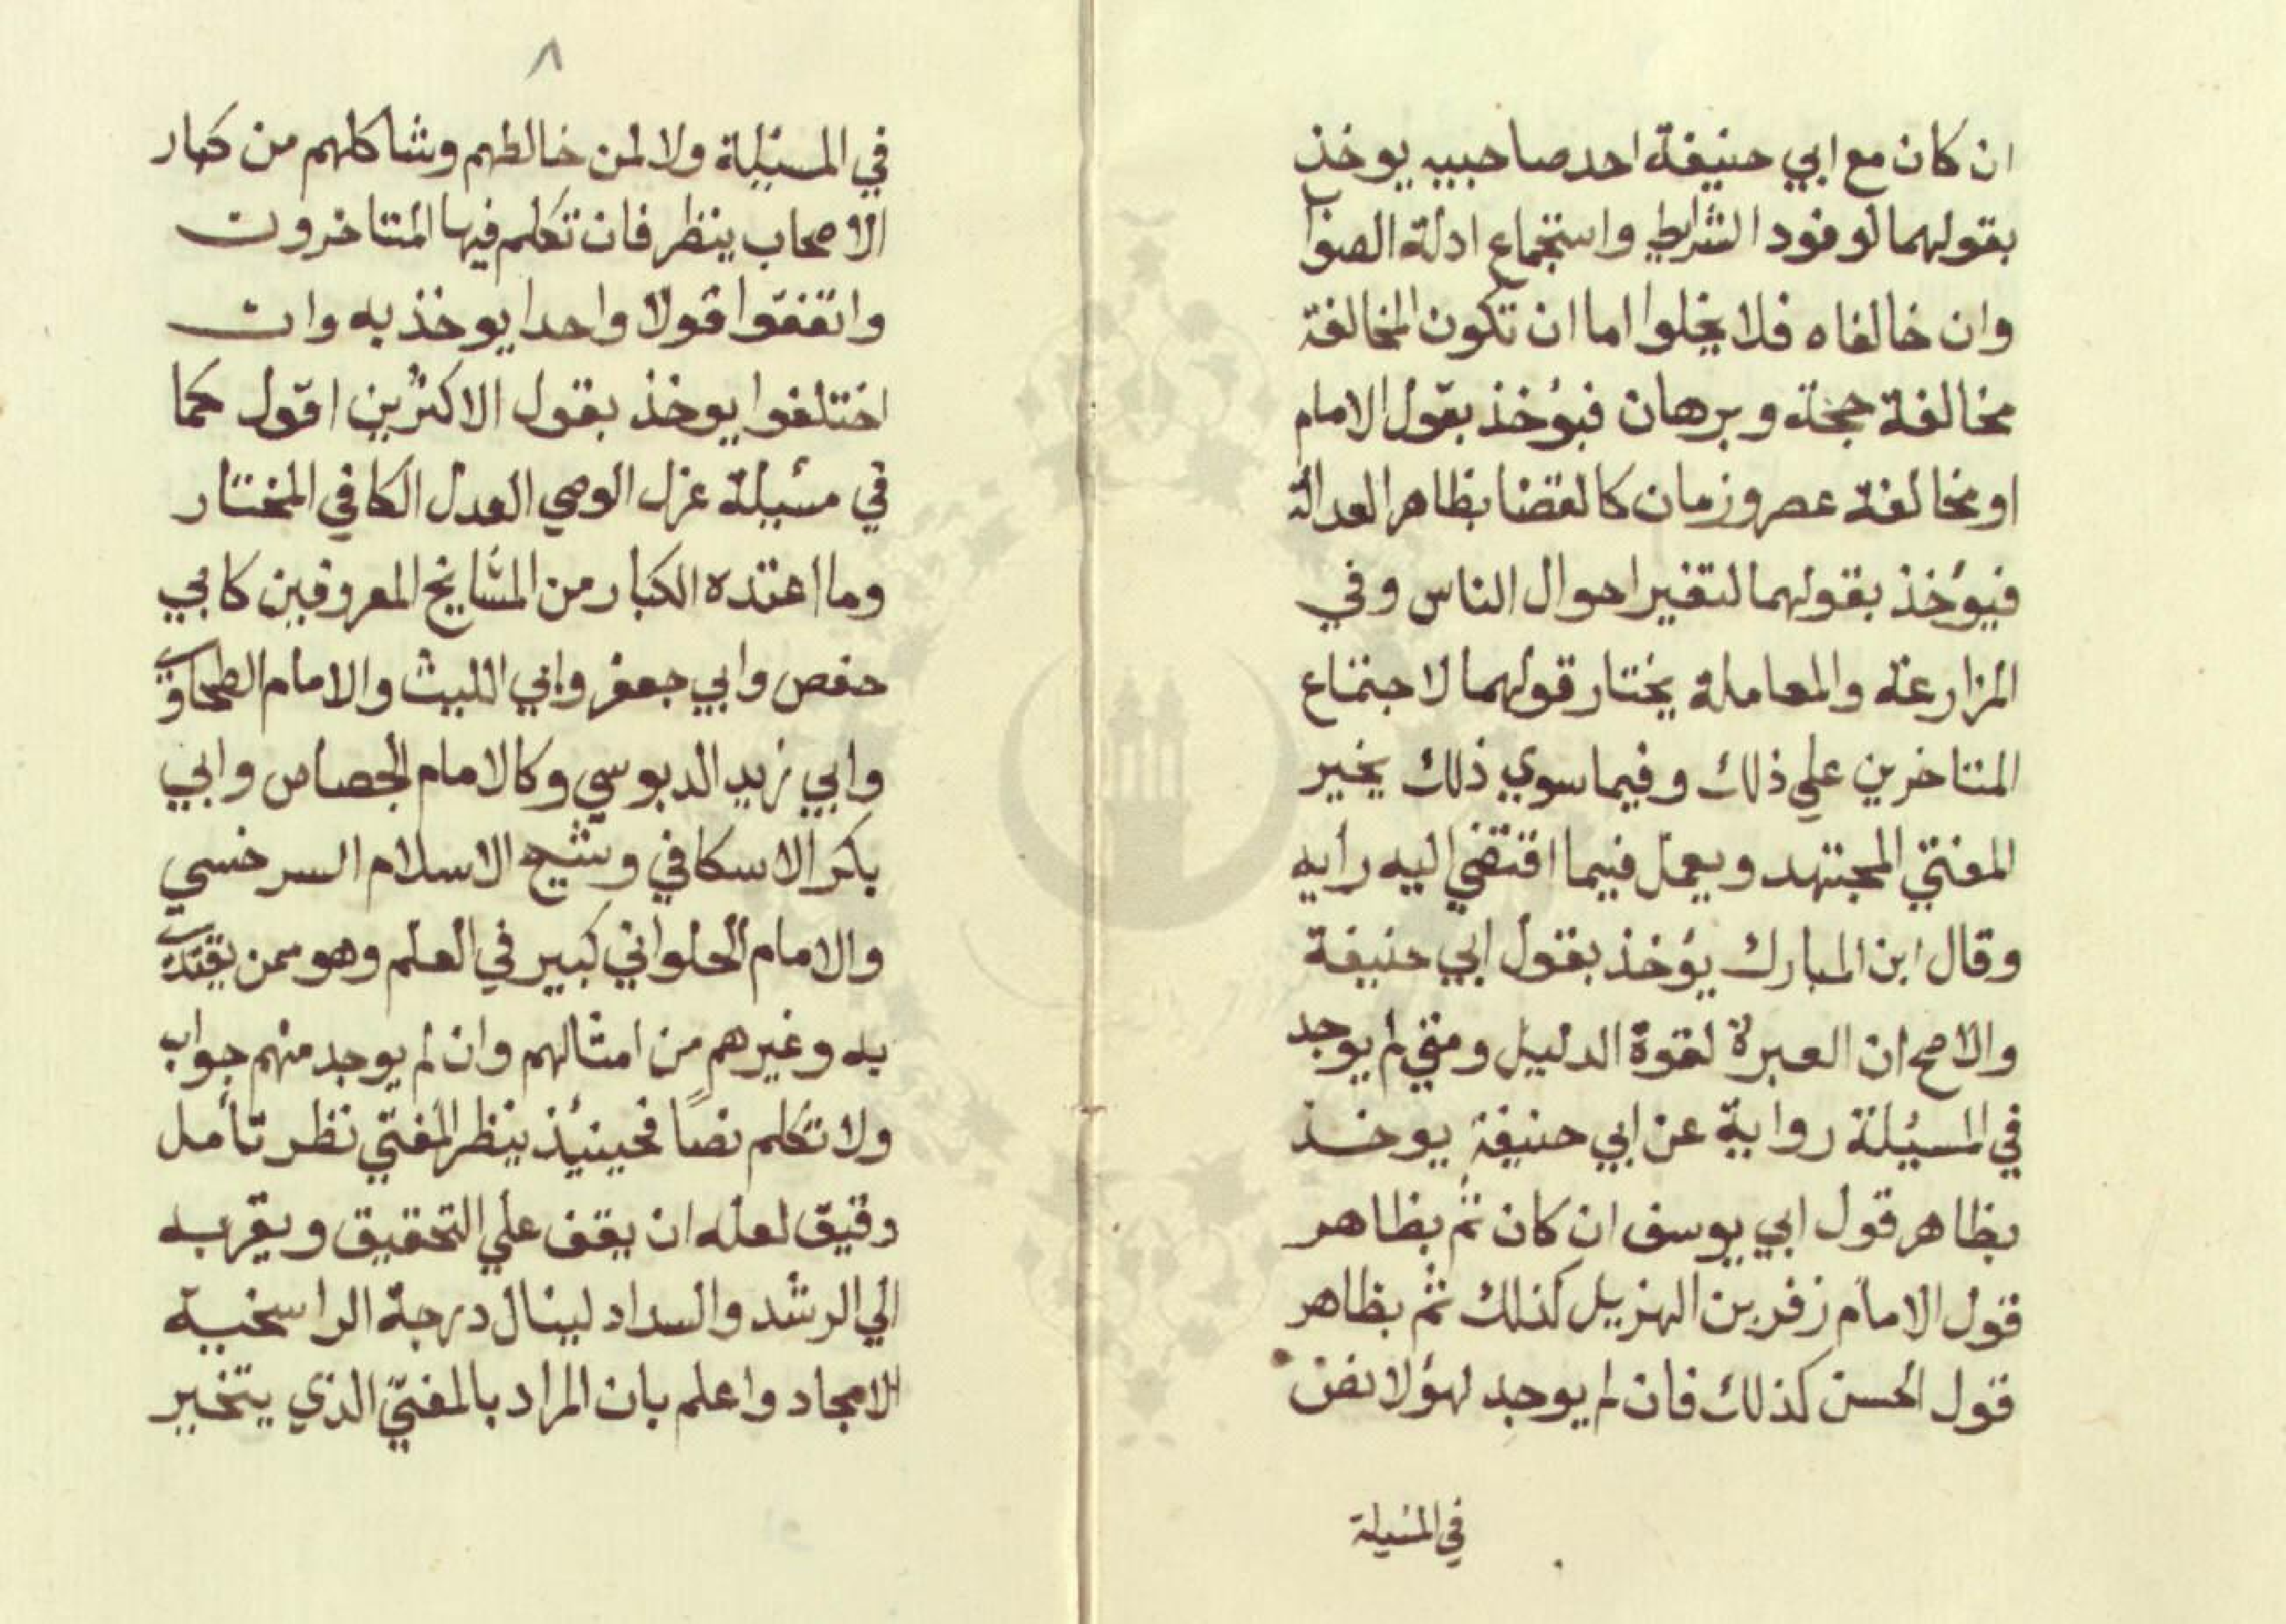 ان كان مع ابي حنيفة احد صاحبيه يوخذ
بقولهما لوفود الشرايط واستجماع ادلة الصواب
وان خالفاه فلا يخلوا اما ان تكون المخالفة
مخالفة حجة وبرهان فيؤخذ بقول الامام
او مخالفة عصر وزمان كالقضا بظاهر العدالة
فيؤخذ بقولهما لتغير احوال الناس وفي
المزارعة والمعاملة يختار قولهما لاجتماع
المتاخرين علي ذلك وفيما سوي ذلك يخير
المفتي المجتهد ويعمل فيما اقتضي اليه رايه
وقال ابن المبارك يؤخذ بقول ابي حنيفة
والاصح ان العبرة لقوة الدليل ومتي لم يوجد
في المسيلة رواية عن ابي حنيفة يوخذ
بظاهر قول ابي يوسف ان كان ثم بظاهر
قول الامام زفر بن الهزيل كذلك ثم بظاهر
قول الحسن كذلك فان لم يوجد لهؤلا نص
في المسيلة
٨
في المسيلة ولا لمن خالطهم وشاكلهم من كبار
الاصحاب ينظر فان تكلم فيها المتاخرون
واتفقوا قولا واحدا يوخذ به وان
اختلفوا يوخذ بقول الاكثرين اقول كما
في مسيلة عزل الوصي العدل الكافي المختار
وما اعتده الكبار من المشايخ المعروفين كابي
حفص وابي جعفر وابي الليث والامام الطحاوي
وابي زيد الدبوسي وكالامام الجصاص وابي
بكر الاسكافي وشيخ الاسلام السرخسي
والامام الحلواني كبير في العلم وهو ممن يقتدي
به وغيرهم من امثالهم وان لم يوجد منهم جواب
ولا تكلم نصا فحينيذ ينظر المفتي نظر تأمل
دقيق لعله ان يقف علي التحقيق ويقربه
الي الرشد والسداد لينال درجة الراسخية
الامجاد واعلم بان المراد بالمفتي الذي يتخير